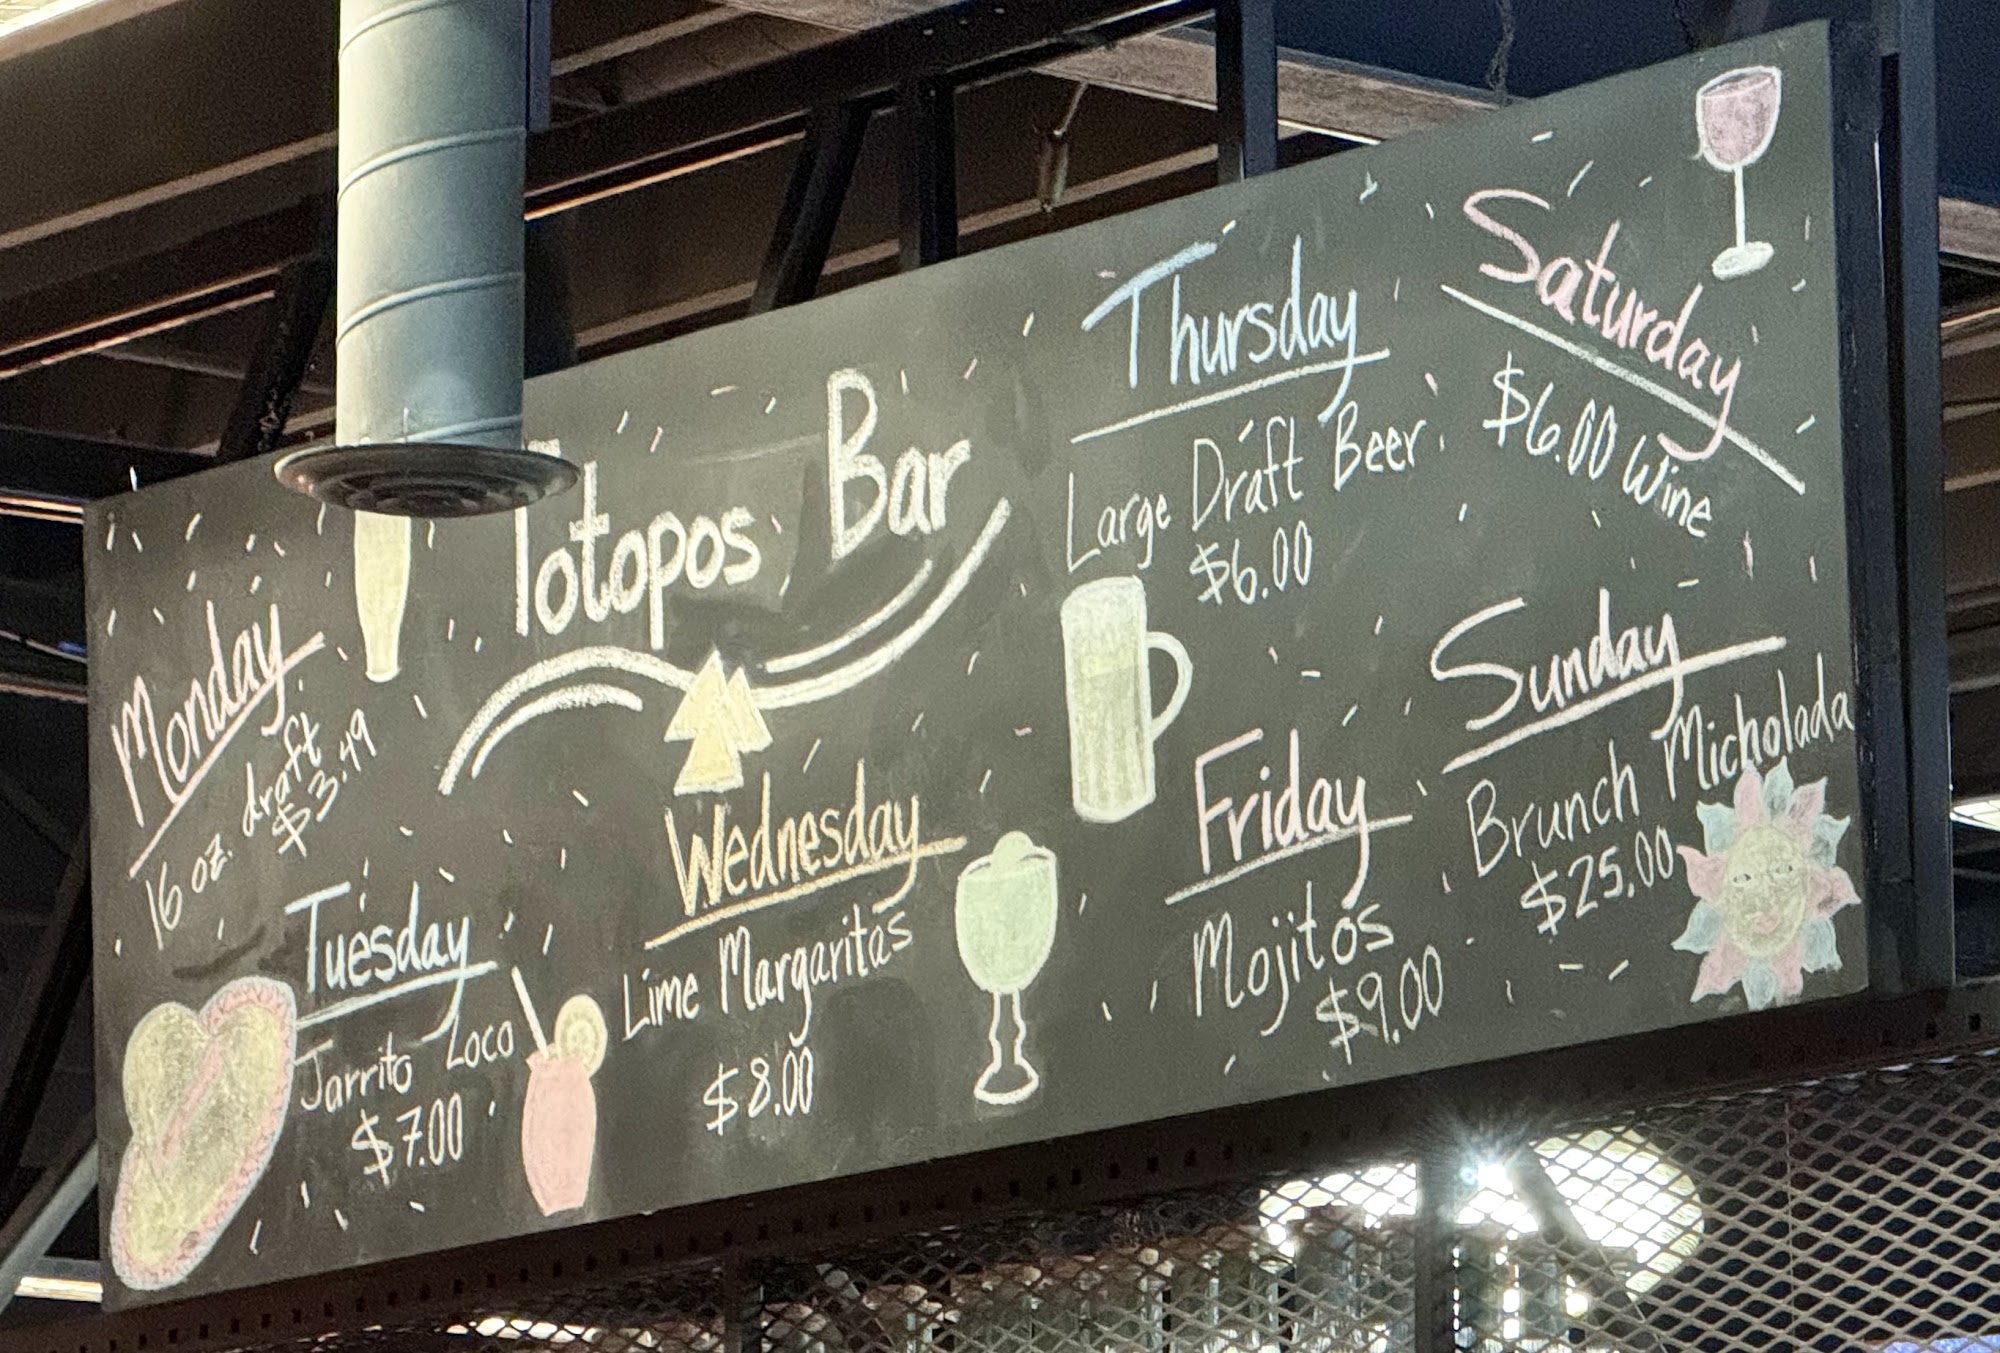 Totopos Bar
Monday
16 oz. draft
$3.49
Tuesday
Jarrito Loco
$7.00
Wednesday
Lime Margaritas
$8.00
Thursday
Large Draft Beer
$6.00
Friday
Mojitos
$9.00
Saturday
$6.00 Wine
Sunday
Brunch Micholada
$25.00